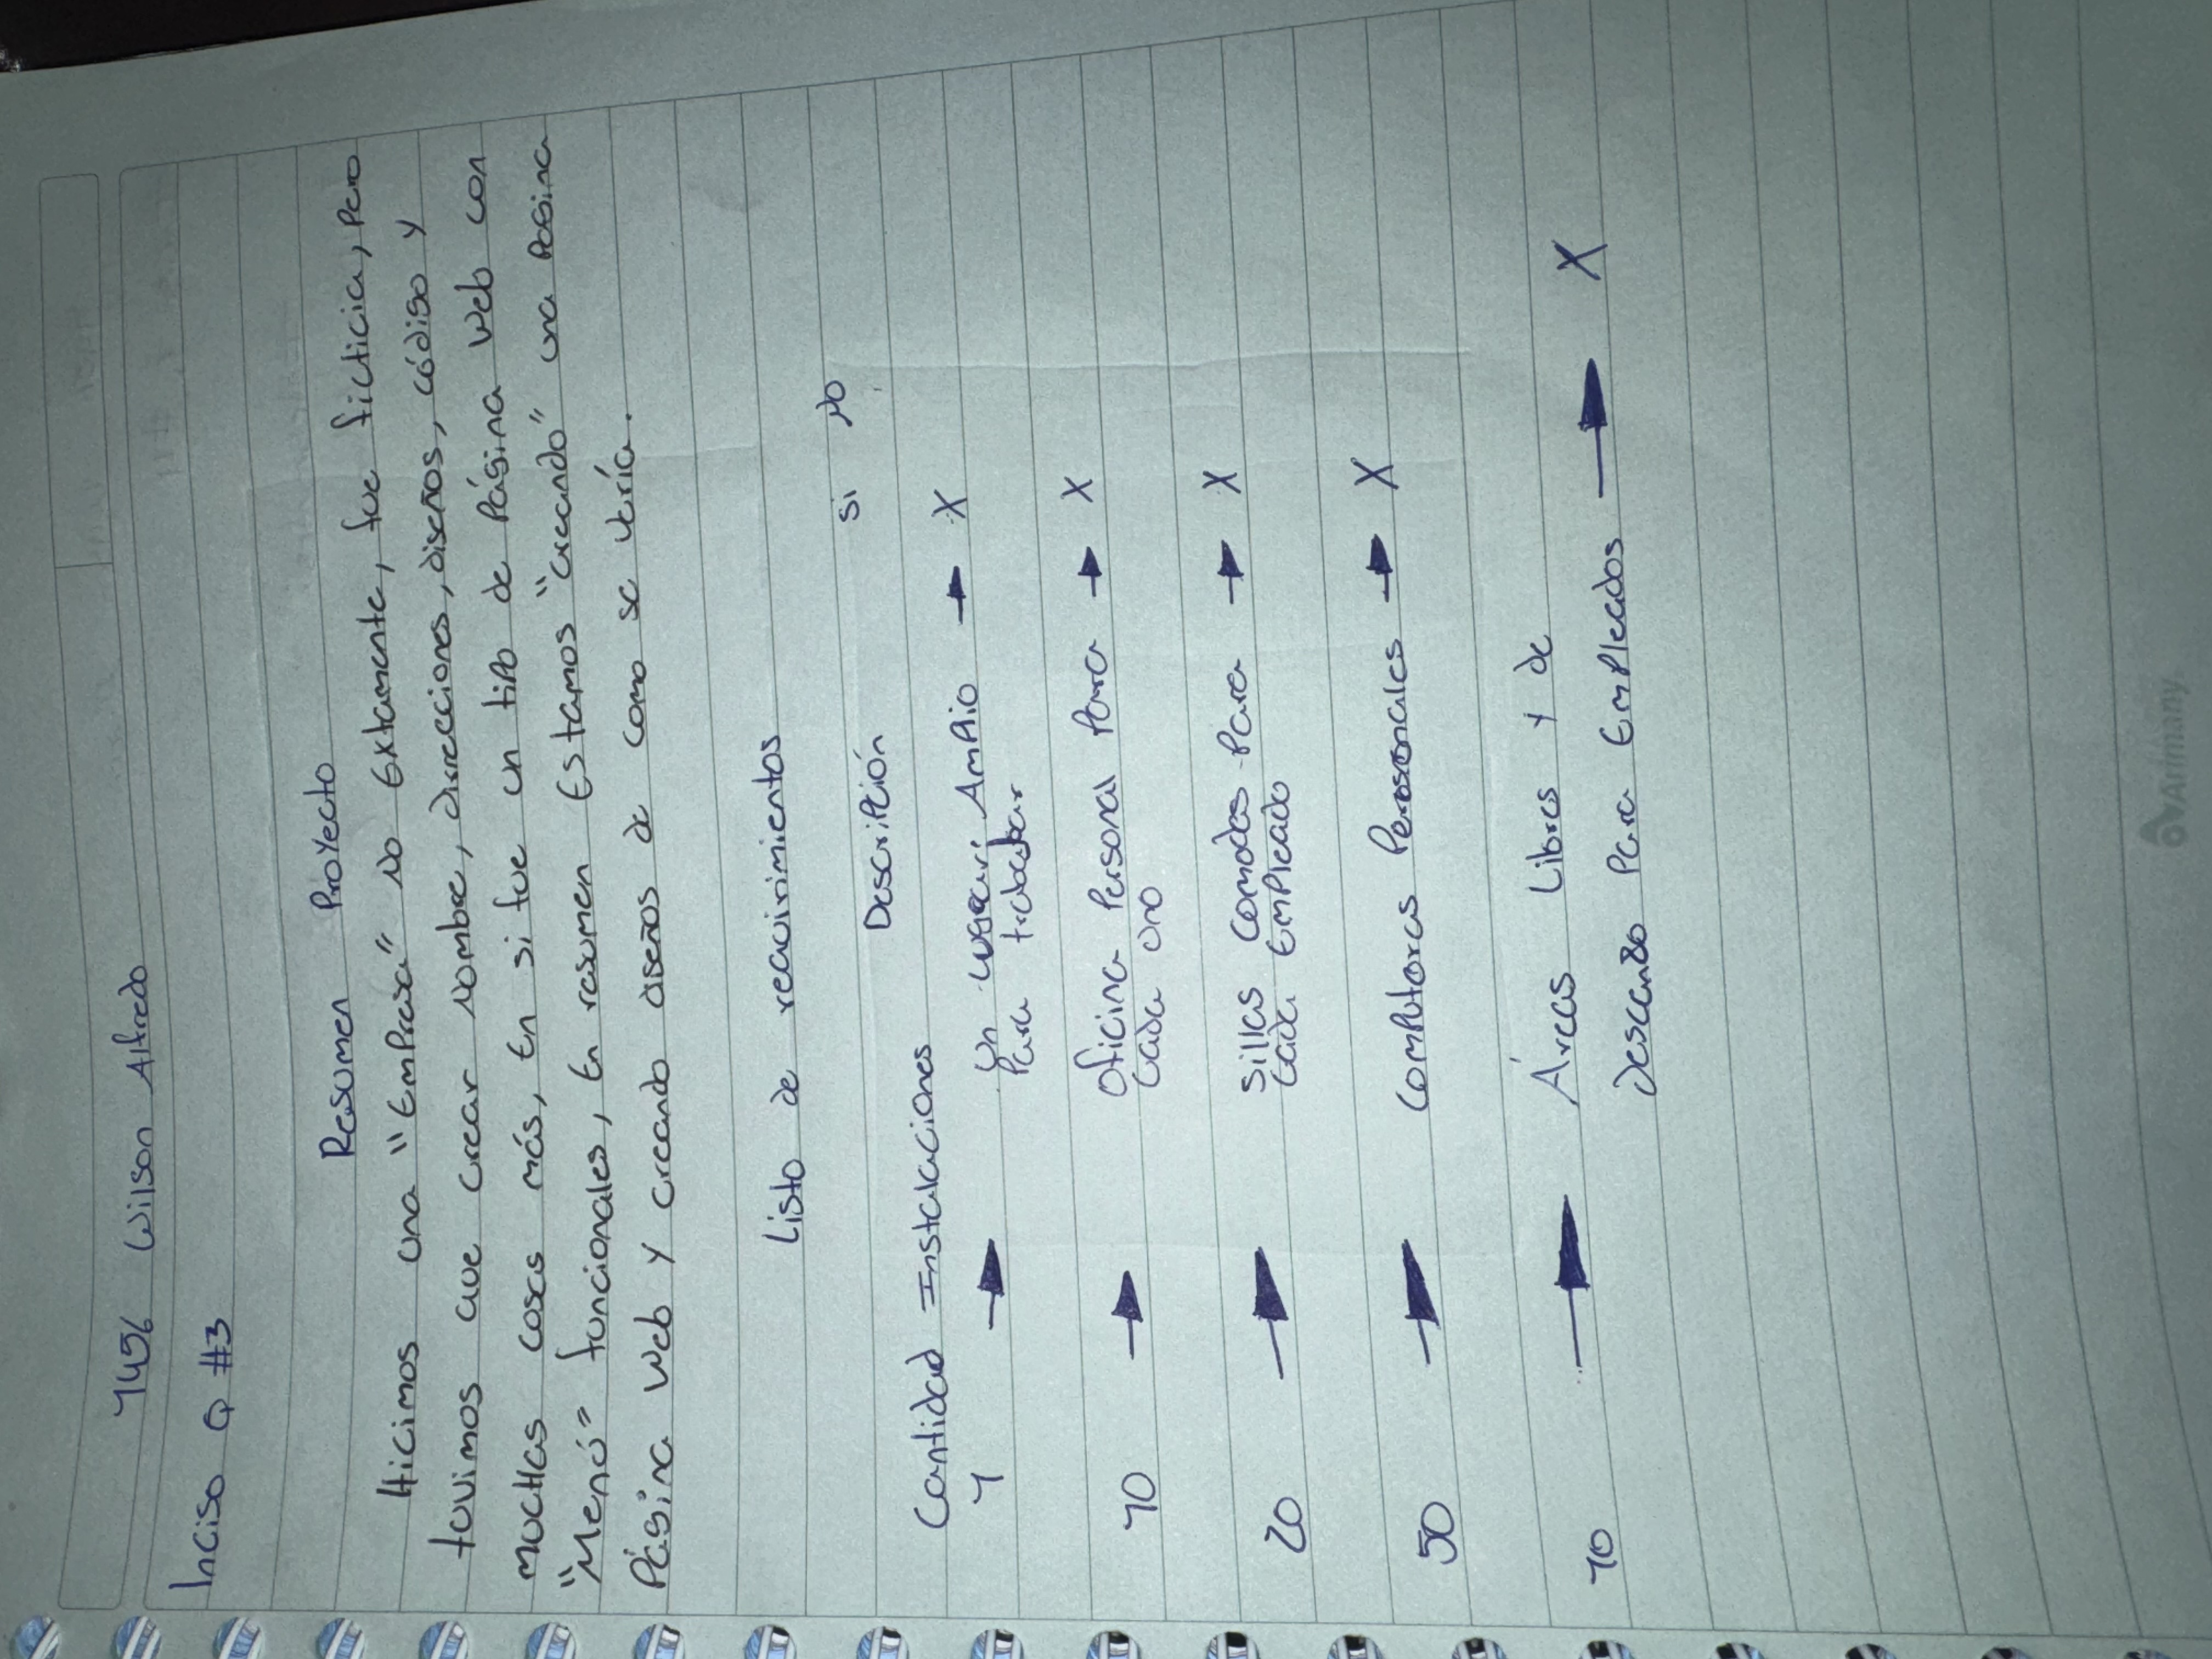 1456 Wilson Alfredo
Inciso Q #3
Resumen Proyecto
Hicimos una "Empresa" No Extamente, fue ficticia, Pero
tuvimos que crear nombre, Direcciones, Diseños, código y
muchas cosas más, En si fue un tipo de Página Web con
"Menú" funcionales, En resumen Estamos "creando" una Pagina
Página Web y creando diseños de como se vería.
Listo de requirimientos
Descripción si No
Cantidad Instalaciones
1 Un Ampio X
Para trabajar
10 Oficina Personal Para X
Cada uno
20 Sillas Comodas Para X
Cada Empleado
50 Computoras Personales X
10 Áreas Libres y de
Descanso Para Empleados X
Arimany